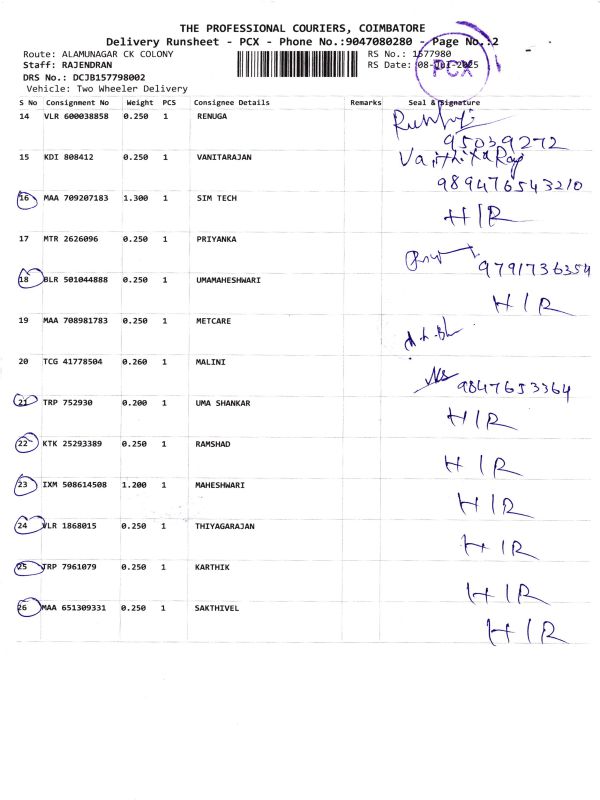 THE PROFESSIONAL COURIERS, COIMBATORE
Delivery Runsheet - PCX - Phone No.:9047080280 - Page No.:2
Route: ALAMUNAGAR CK COLONY RS No.: 1577980
Staff: RAJENDRAN RS Date: 08-Jul-2025
PCX
DRS No.: DCJB157798002
Vehicle: Two Wheeler Delivery
S No Consignment No Weight PCS Consignee Details Remarks Seal & Signature
14 VLR 600038858 0.250 1 RENUGA
95039272
15 KDI 808412 0.250 1 VANITARAJAN
989476543210
16 MAA 709207183 1.300 1 SIM TECH H/R
17 MTR 2626096 0.250 1 PRIYANKA
9791736354
18 BLR 501044888 0.250 1 UMAMAHESHWARI H/R
19 MAA 708981783 0.250 1 METCARE
20 TCG 41778504 0.260 1 MALINI
9847653364
21 TRP 752930 0.200 1 UMA SHANKAR H/R
22 KTK 25293389 0.250 1 RAMSHAD H/R
23 IXM 508614508 1.200 1 MAHESHWARI H/R
24 VLR 1868015 0.250 1 THIYAGARAJAN H/R
25 TRP 7961079 0.250 1 KARTHIK H/R
26 MAA 651309331 0.250 1 SAKTHIVEL H/R